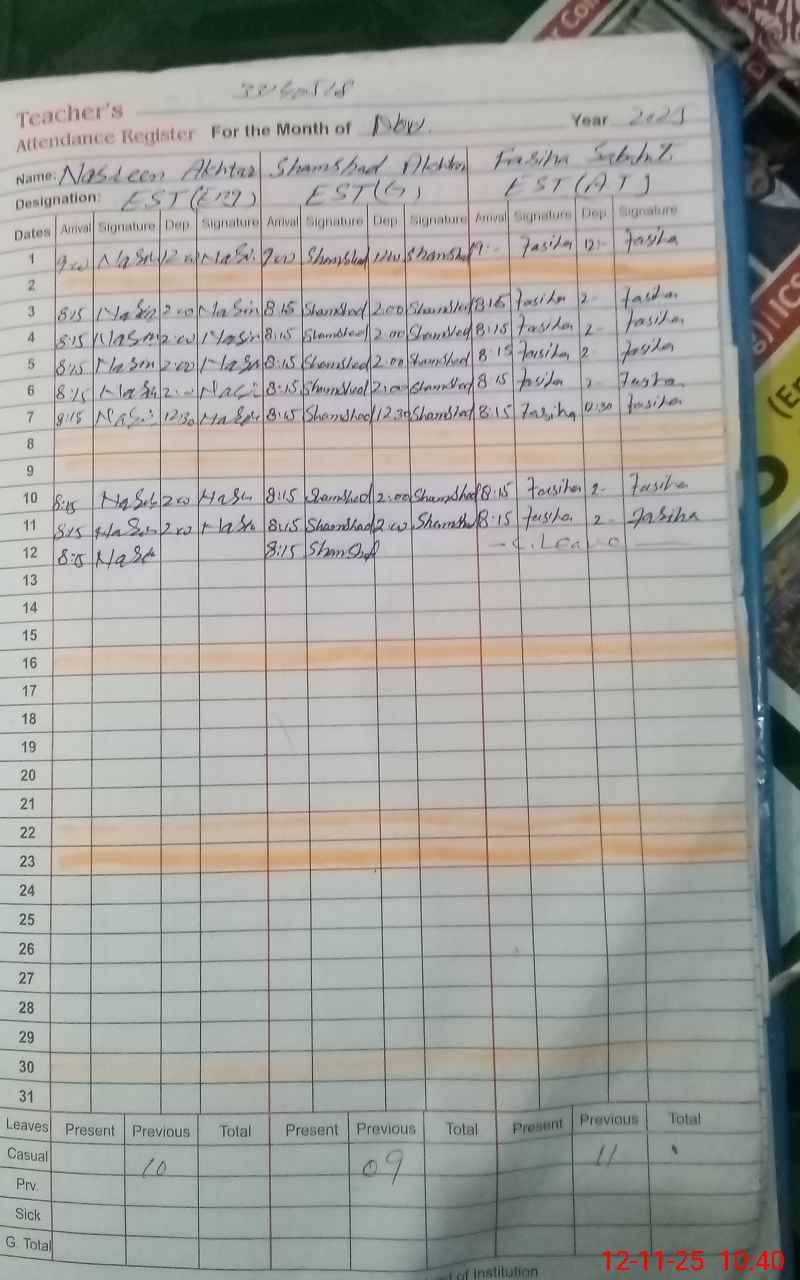 33160518
Teacher's
Attendance Register For the Month of Nov. Year 2025
Name: Nasreen Akhtar Shamshad Akhtar Fasiha
Designation: EST(Eng) EST(G) EST(A.T)
Dates Arrival Signature Dep. Signature Arrival Signature Dep. Signature Arrival Signature Dep. Signature
1 9 00 NaSrn 12 00 NaSrn 9 00 Shamshad 12 00 Shamshad 9 - Fasiha 12 - Fasiha
2
3 8:15 NaSrn 2 00 NaSrn 8:15 Shamshad 2.00 Shamshad 8:15 Fasiha 2 - Fasiha
4 8:15 NaSrn 2 00 NaSrn 8:15 Shamshad 2.00 Shamshad 8:15 Fasiha 2 - Fasiha
5 8:15 NaSrn 2 00 NaSrn 8:15 Shamshad 2.00 Shamshad 8:15 Fasiha 2 Fasiha
6 8:15 NaSrn 2 - 8:15 Shamshad 2:00 Shamshad 8:15 Fasiha 2 Fasiha
7 8:15 NaSrn 12:30 NaSrn 8:15 Shamshad 12.30 Shamshad 8:15 Fasiha 12:30 Fasiha
8
9
10 8:15 NaSrn 2 00 NaSrn 8:15 Shamshad 2.00 Shamshad 8:15 Fasiha 2 - Fasiha
11 8:15 NaSrn 2 00 NaSrn 8:15 Shamshad 2 00 Shamshad 8:15 Fasiha 2 - Fasiha
12 8:15 NaSrn 8:15 Shamshad - C.Leave -
13
14
15
16
17
18
19
20
21
22
23
24
25
26
27
28
29
30
31
Leaves Present Previous Total Present Previous Total Present Previous Total
Casual 10 09 11
Prv.
Sick
G. Total
of Institution
12-11-25 10:40